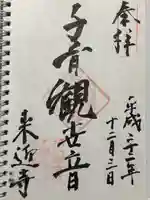 奉拝
平成二十一年
十二月三日
子育観世音
来迎寺